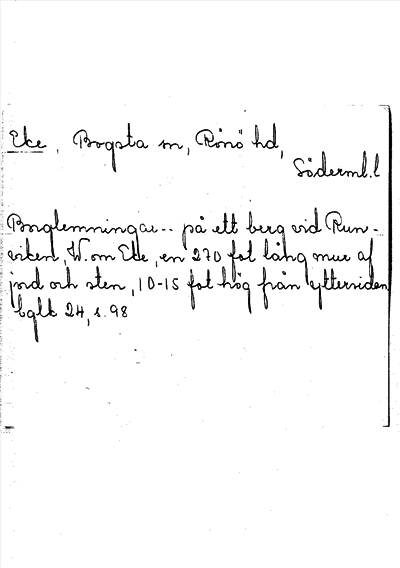 Eke, Bogsta sn, Rönö hd,
Söderml.l
Borglemningar -- på ett berg vid Run-
viken, W. om Eke, en 270 fot lång mur af
jord och sten, 10-15 fot hög från yttersidan
bglk 24, s. 98